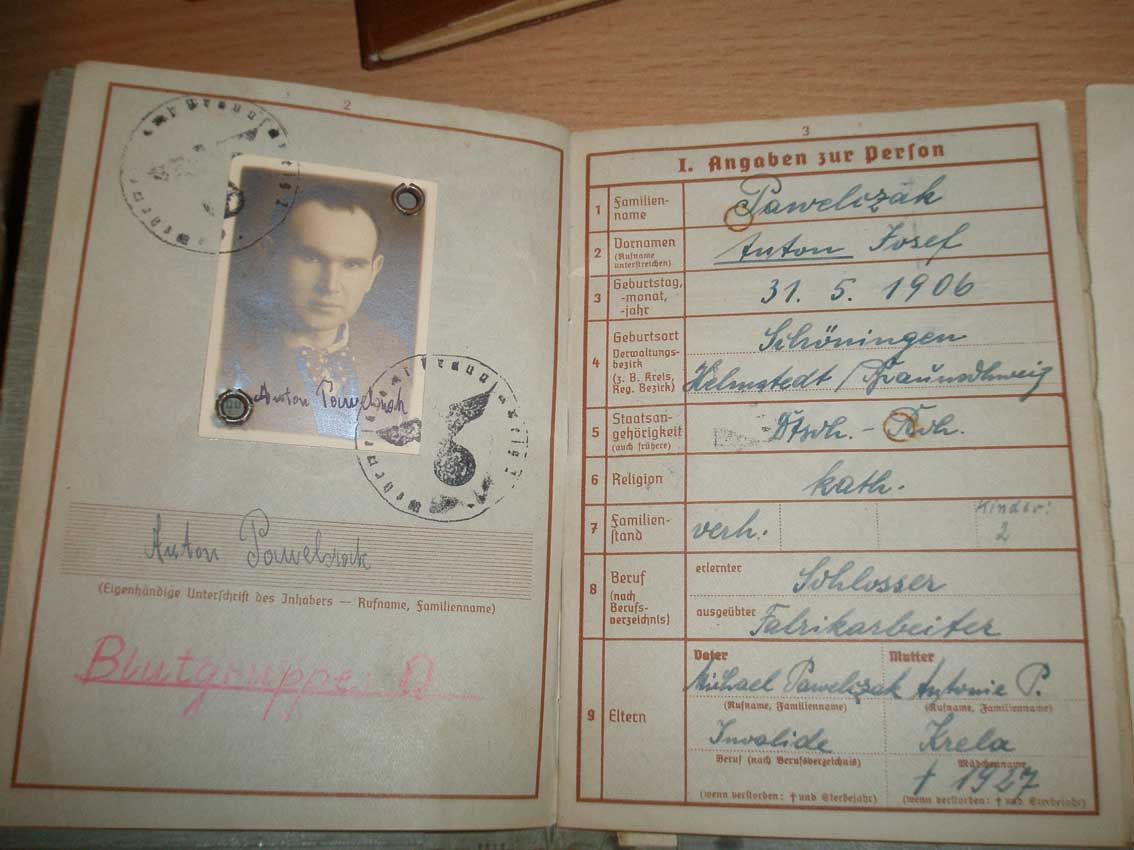 2
Anton Pawelczak
Anton Pawelczak
(Eigenhändige Unterschrift des Inhabers — Rufname, Familienname)
Blutgruppe:
3
I. Angaben zur Person
1 Familien-
name
Pawelczak
2 Vornamen
(Rufname
unterstreichen)
Anton Josef
3 Geburtstag,
-monat,
-jahr
31. 5. 1906
4 Geburtsort
Verwaltungs-
bezirk
(z. B. Kreis,
Reg. Bezirk)
Schöningen
Helmstedt / Braunschweig
5 Staatsan-
gehörigkeit
(auch frühere)
Dtsch. - Rch.
6 Religion
kath.
7 Familien-
stand
verh.
Kinder:
2
8 Beruf
(nach
Berufs-
verzeichnis)
erlernter
Schlosser
ausgeübter
Fabrikarbeiter
9 Eltern
Vater
Michael Pawelczak
(Rufname, Familienname)
Invalide
Beruf (nach Berufsverzeichnis)
(wenn verstorben: † und Sterbejahr)
Mutter
Antonie P.
(Rufname, Familienname)
Krela
Mädchenname
† 1927
(wenn verstorben: † und Sterbejahr)